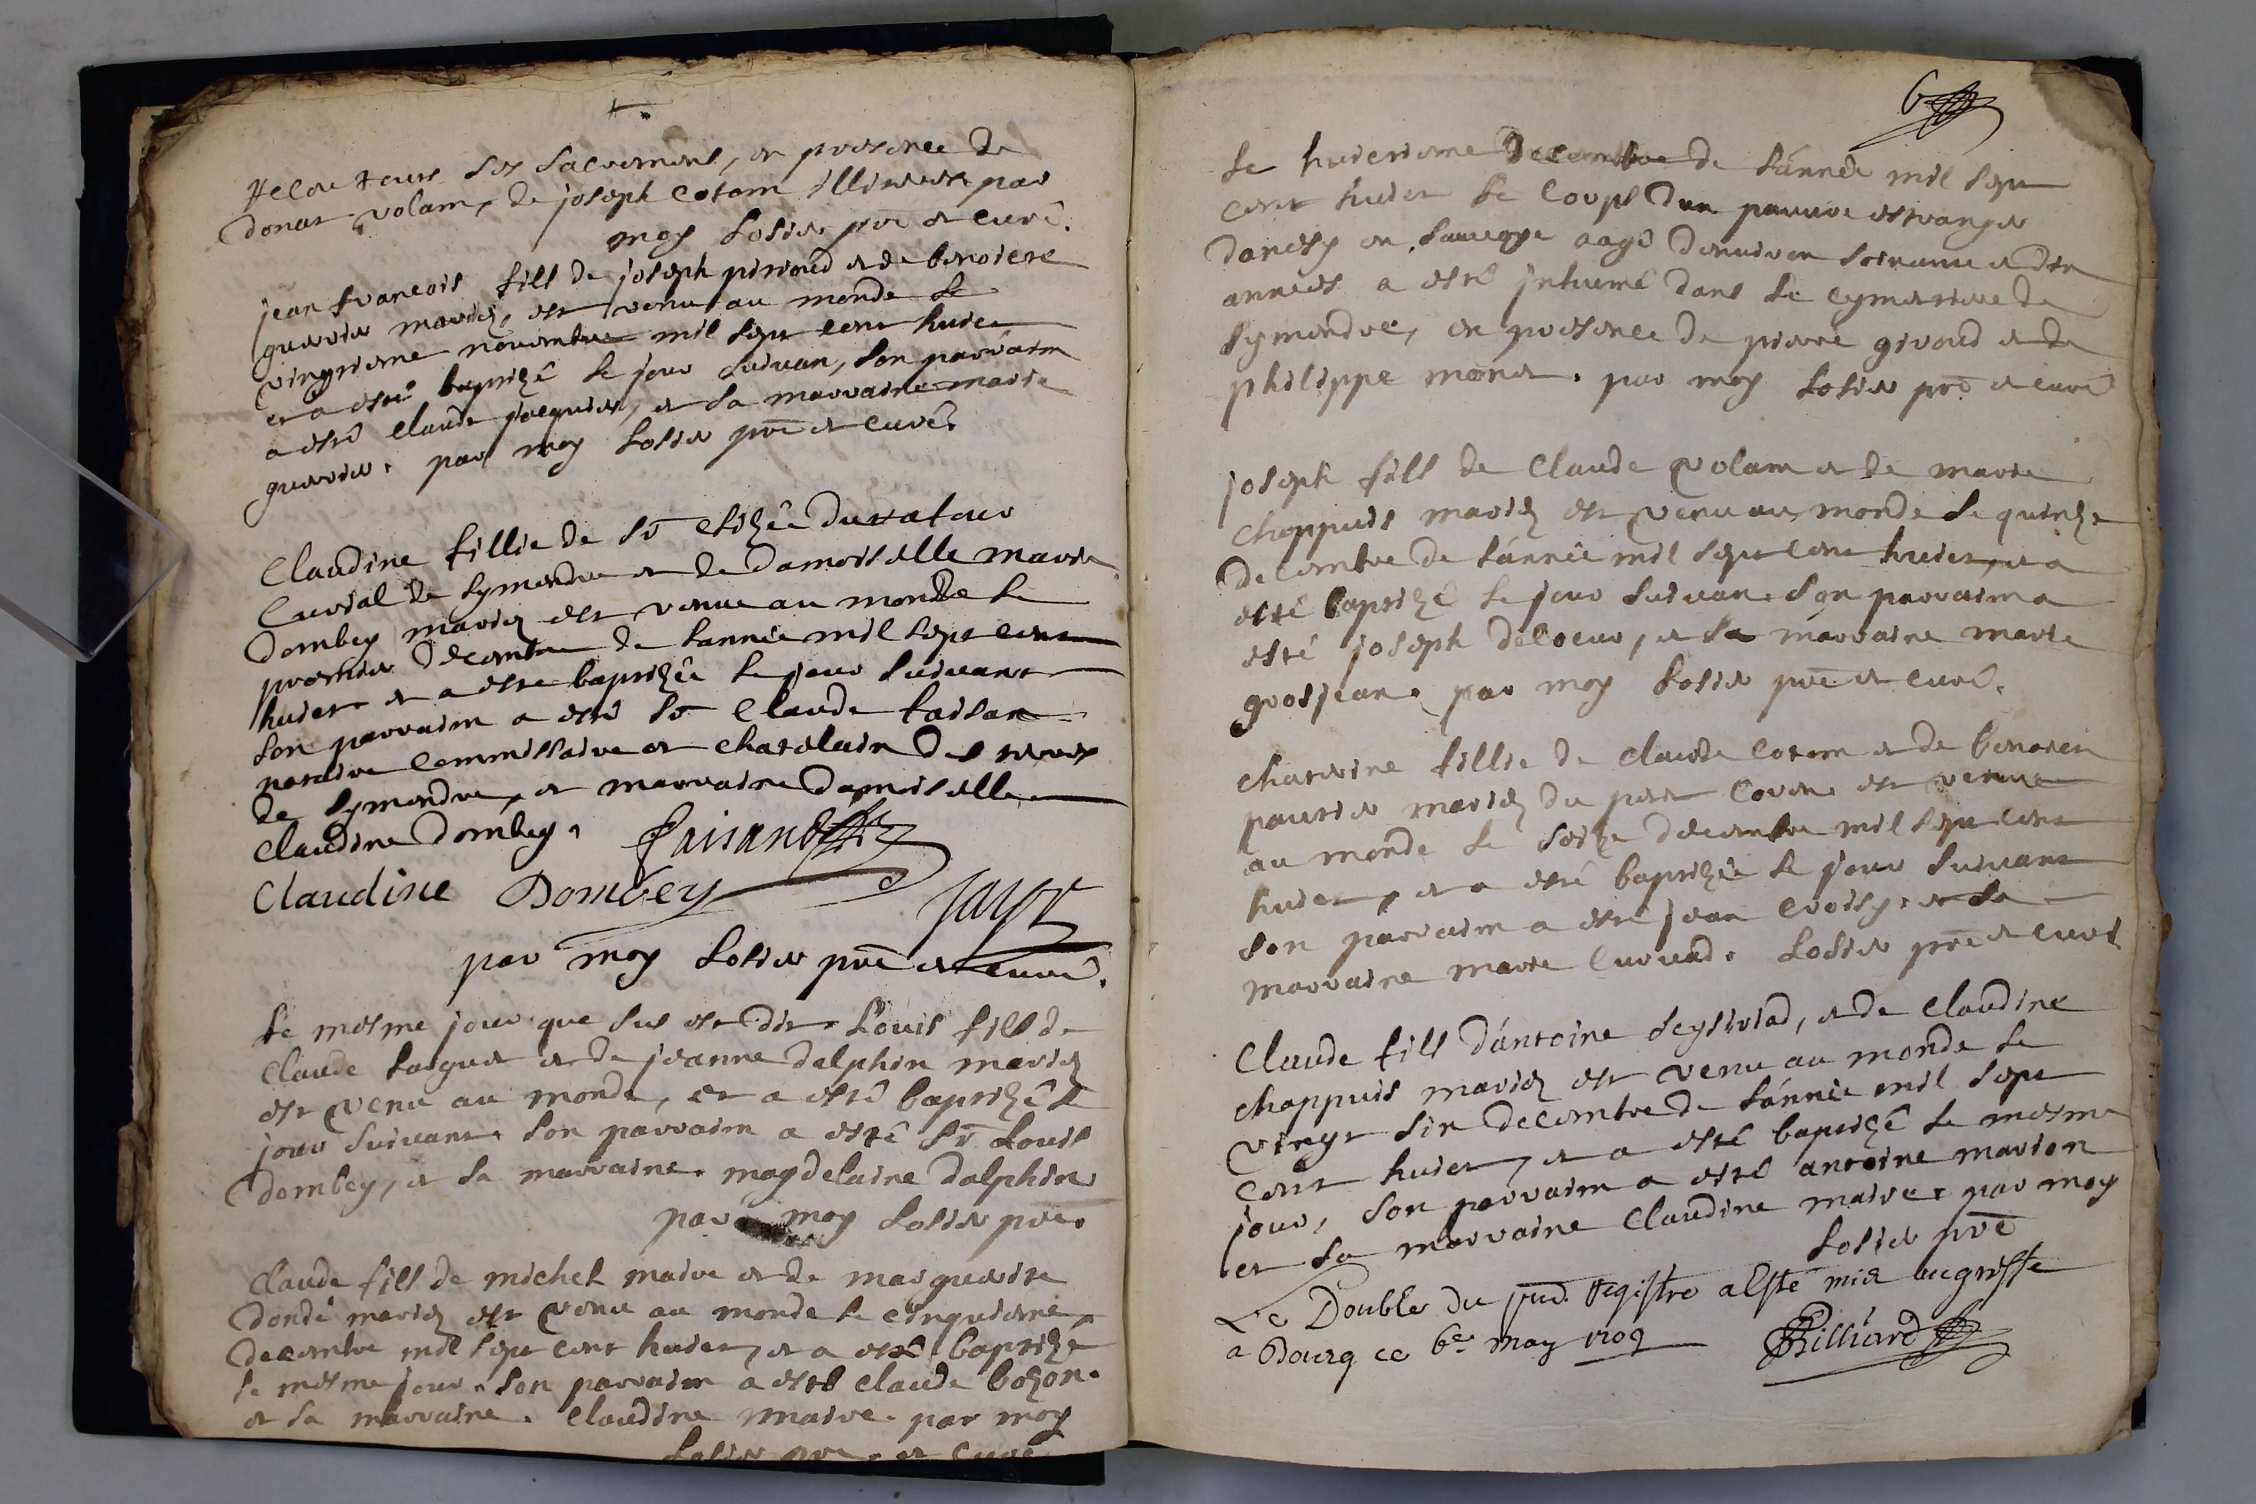 receu tous ses sacrements, en presence de
donat volam, de joseph cotam illiterés par
moy Losier pre et curé.
jean francois fils de joseph piroud et de benoiste
guerrier mariez, est venu au monde le
vingtieme novembre mil sept cent huict
et a esté baptizé le jour suivan, son parrain
a esté claude jacquier, et sa marraine marie
guerrier. par moy Losier pre et curé.
Claudine fillie de Sr Elizée duratour
Curial de Symandre et de Damoiselle marie
Dombey mariez est venue au monde le
premier decembre de l'année mil sept cent
huict et a esté baptizée le jour suivant
son parrain a esté Sr Claude faisan
notaire Commissaire et chatelain des terres
de Symandre, et marraine Damoiselle
Claudine Dombey. Faisand
Claudine Dombey Jayr
par moy Losier pre et curé.
Le mesme jour que sus est dit. Louis fils de
Claude Laguet et de jeanne dalphin mariez
est venu au monde, et a esté baptizé le
jour suivant. son parrain a esté Sr Louis
Dombey, et sa marraine. magdelaine dalphin
par moy Losier pre.
Claude fils de michel maire et de marguerite
Dondé mariez est venu au monde le cinquieme
decembre mil sept cent huict, et a esté baptizé
le mesme jour. son parrain a esté claude bozon.
et sa marraine. Claudine maire. par moy
Losier pre. et curé
6
Le huictieme Decembre de l'année mil sept
cent huict le Corps d'un pauvre estranger
d'anesy en Savoye aagé d'environ soixante et dix
années a esté inhumé dans le cymetiere de
Symandre, en presence de pierre giroud et de
philippe monet. par moy Losier pre et curé
joseph fils de Claude volam et de marie
Chappuis mariez est venu au monde le quinze
decembre de l'année mil sept cent huict, et a
esté baptizé le jour suivan. son parrain a
esté joseph delocur, et sa marraine marie
grosjean. par moy Losier pre et curé.
Chaterine fillie de claude cotam et de benoite
paurier mariez du petit Coren. est venue
au monde le seize decembre mil sept cent
huict, et a esté baptizée le jour suivant
son parrain a esté jean Croisy. et sa
marraine marie Curuad. Losier pre et curé
Claude fils d'antoine Seystriad, et de Claudine
chappuis mariez est venu au monde le
vingt six decembre de l'année mil sept
cent huict, et a esté baptizé le mesme
jour, son parrain a esté antoine marion
et sa marraine Claudine maire. par moy
Losier pre
Le Double du pnt. Registre a esté mis au greffe
a Bourg ce 6e may 1709 Billiard